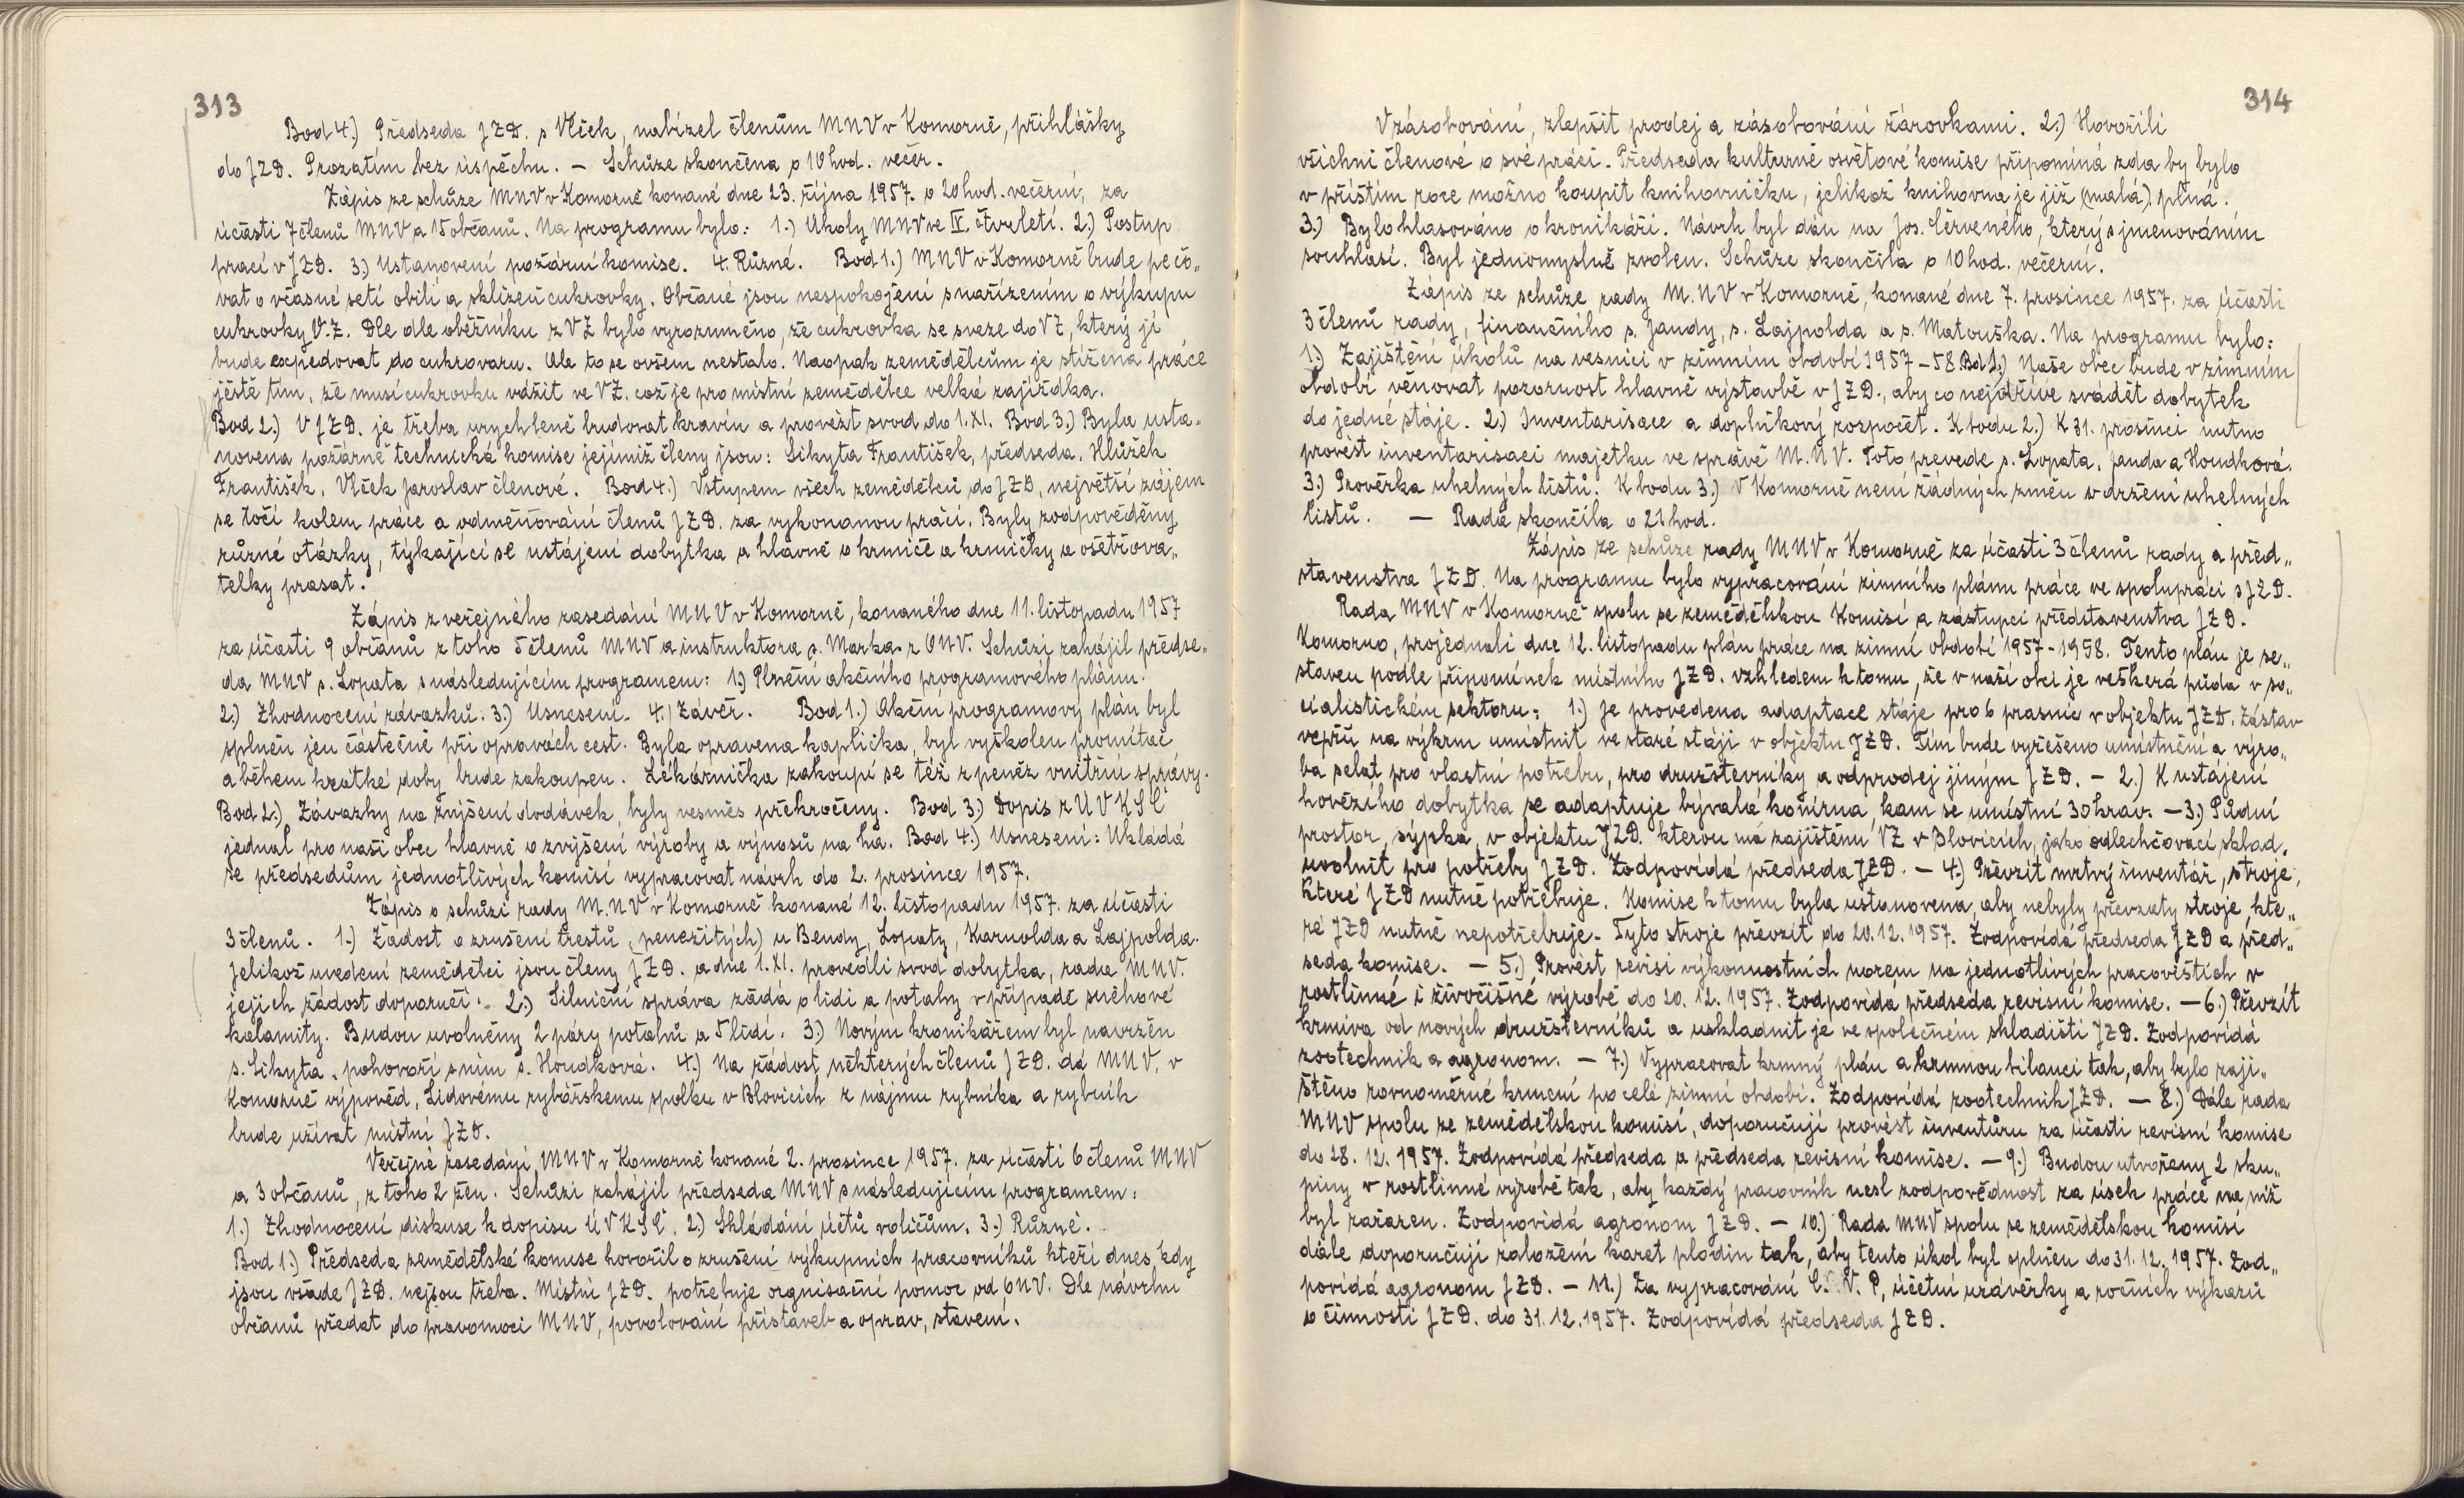 313
Bod 4.) Předseda JZD. s Vlček, nabízel členům MNV v Komorně, přihlášky
do JZD. Prozatím bez úspěchu. – Schůze skončena o 10 hod. večer.
Zápis ze schůze MNV v Komorně konané dne 23. října 1957. o 20 hod. večerní, za
účasti 7 členů MNV a 15 občanů. Na programu bylo: 1.) Úkoly MNV ve IV. čtvrletí. 2.) Postup
prací v JZD. 3.) Ustanovení požární komise. 4. Různé. Bod 1.) MNV v Komorně bude pečo„
vat o včasné setí obilí a sklizeň cukrovky. Občané jsou nespokojeni s nařízením o výkupu
cukrovky V.Z. Dle dle oběžníku z VZ bylo vyrozuměno, že cukrovka se sveze do VZ, který ji
bude expedovat do cukrovaru. Ale to se ovšem nestalo. Naopak zemědělcům je stížena práce
ještě tím, že musí cukrovku vážit ve VZ. což je pro místní zemědělce velká zajížďka.
Bod 2.) V JZD. je třeba urychleně budovat kravín a provézt svod do 1. XI. Bod 3.) Byla usta„
novena požárně technická komise jejímiž členy jsou: Sikyta František, předseda. Hlůžek
František, Vlček Jaroslav členové. Bod 4.) Vstupem všech zemědělců do JZD, největší zájem
se točí kolem práce a odměňování členů JZD. za vykonanou práci. Byly zodpověděny
různé otázky, týkající se ustájení dobytka a hlavně o krmiče a krmičky a ošetřova„
telky prasat.
Zápis z veřejného zasedání MNV v Komorně, konaného dne 11. listopadu 1957
za účasti 9 občanů z toho 5 členů MNV a instruktora s. Marka z ONV. Schůzi zahájil předse„
da MNV s. Lopata s následujícím programem: 1.) Plnění akčního programového plánu.
2.) Zhodnocení závazků. 3.) Usnesení. 4.) Závěr. Bod 1.) Akční programový plán byl
splněn jen částečně při opravách cest. Byla opravena kaplička, byl vyškolen promítač
a během krátké doby bude zakoupen. Lékárnička zakoupí se též z peněz vnitřní správy.
Bod 2.) Závazky na zvýšení dodávek, byly vesměs překročeny. Bod 3.) Dopis z ÚV KSČ
jednal pro naši obec hlavně o zvýšení výroby a výnosů na ha. Bod 4.) Usnesení: Ukládá
se předsedům jednotlivých komisí vypracovat návrh do 2. prosince 1957.
Zápis o schůzi rady M.NV v Komorně konané 12. listopadu 1957. za účasti
3 členů. 1.) Žádost o zrušení trestů (peněžitých) u Bendy, Lopaty, Karnolda a Lajpolda.
Jelikož uvedení zemědělci jsou členy JZD. a dne 1. XI. provedli svod dobytka, rada MNV.
jejich žádost doporučí. 2.) Silniční správa žádá o lidi a potahy v případě sněhové
kalamity. Budou uvolněny 2 páry potahů a 5 lidí. 3.) Novým kronikářem byl navržen
s. Sikyta, pohovoří s ním s. Houdková. 4.) Na žádost některých členů JZD. dá MNV. v
Komorně výpověd, Lidovému rybářskemu spolku v Blovicích z nájmu rybníka a rybník
bude užívat místní JZD.
Veřejné zasedání MNV v Komorně konané 2. prosince 1957. za účasti 6 členů MNV
a 3 občanů, z toho 2 žen. Schůzi zahájil předseda MNV s následujícím programem:
1.) Zhodnocení diskuse k dopisu ÚV KSČ. 2.) Skládání účtů voličům. 3.) Různé.
Bod 1.) Předseda zemědělské komise hovořil o zrušení výkupních pracovníků kteří dnes, kdy
jsou všade JZD. nejsou třeba. Místní JZD. potřebuje orgnisační pomoc od ONV. Dle návrhu
občanů předat do pravomoci MNV, povolování přístaveb a oprav, stavení.
314
V zásobování, zlepšit prodej a zásobování žárovkami. 2.) Hovořili
všichni členové o své práci. Předseda kulturně osvětové komise připomíná zda by bylo
v příštím roce možno koupit knihovničku, jelikož knihovna je již (malá) plná.
3.) Bylo hlasováno o kronikáři. Návrh byl dán na Jos. Červeného, který s jmenováním
souhlasí. Byl jednomyslně zvolen. Schůze skončila o 10 hod. večerní.
Zápis ze schůze rady M.NV v Komorně, konané dne 7. prosince 1957. za účasti
3 členů rady, finančního s. Jandy, s. Lajpolda a s. Matouška. Na programu bylo:
1.) Zajištění úkolů na vesnici v zimním období 1957–58. Bod 1.) Naše obec bude v zimním
období věnovat pozornost hlavně výstavbě v JZD., aby co nejdříve svádět dobytek
do jedné stáje. 2.) Inventarisace a doplňkový rozpočet. K bodu 2.) K 31. prosinci nutno
provést inventarisaci majetku ve správě M.NV. Toto prevede s. Lopata, Janda a Houdková.
3.) Prověrka uhelných listů. K bodu 3.) V Komorně není žádných změn v držení uhelných
listů. — Rada skončila o 21 hod.
Zápis ze schůze rady MNV v Komorně za účasti 3 členů rady a před„
stavenstva JZD. Na programu bylo vypracování zimního plánu práce ve spolupráci s JZD.
Rada MNV v Komorně spolu se zemědělskou Komisí a zástupci představenstva JZD.
Komorno, projednali dne 12. listopadu plán práce na zimní období 1957-1958. Tento plán je se„
staven podle připomínek místního JZD. vzhledem k tomu, že v naší obci je veškerá půda v so„
cialistickém sektoru: 1.) Je provedena adaptace stáje pro 6 prasnic v objektu JZD. Zástav
vepřů na výkrm umístnit ve staré stáji v objektu JZD. Tím bude vyřešeno umístnění a výro„
ba selat pro vlastní potřebu, pro družstevníky a odprodej jiným JZD. – 2.) K ustájení
hovězího dobytka se adaptuje bývalá konírna, kam se umístní 30 krav. – 3.) Půdní
prostor, sýpka, v objektu JZD. kterou má zajištěnu VZ v Blovicích, jako odlehčovací sklad.
uvolnit pro potřeby JZD. Zodpovídá předseda JZD. – 4.) Převzít mrtvý inventář, stroje,
které JZD nutně potřebuje. Komise k tomu byla ustanovena, aby nebyly převzaty stroje, kte„
ré JZD nutně nepotřebuje. Tyto stroje převzít do 20. 12. 1957. Zodpovídá předseda JZD a před„
seda komise. – 5.) Provést revisi výkonnostních norem na jednotlivých pracovištích v
rostlinné i živočišné výrobě do 20. 12. 1957. Zodpovídá předseda revisní komise. – 6.) Převzít
krmiva od nových družstevníků a uskladnit je ve společném skladišti JZD. Zodpovídá
zootechnik a agronom. – 7.) Vypracovat krmný plán a krmnou bilanci tak, aby bylo zaji„
štěno rovnoměrné krmení po celé zimní období. Zodpovídá zootechnik JZD. – 8.) Dále rada
MNV spolu ze zemědělskou komisí, doporučují provést inventůru za účasti revisní komise
do 28. 12. 1957. Zodpovídá předseda a předseda revisní komise. – 9.) Budou utvořeny 2 sku„
piny v rostlinné výrobě tak, aby každý pracovník nesl zodpovědnost za úsek práce na níž
byl zařazen. Zodpovídá agronom JZD. – 10.) Rada MNV spolu se zemědělskou komisí
dále doporučují založení karet plodin tak, aby tento úkol byl splněn do 31. 12. 1957. Zod„
povídá agronom JZD. – 11.) Za vypracování C. V. P, účetní uzávěrky a ročních výkazů
o činnosti JZD. do 31. 12. 1957. Zodpovídá předseda JZD.